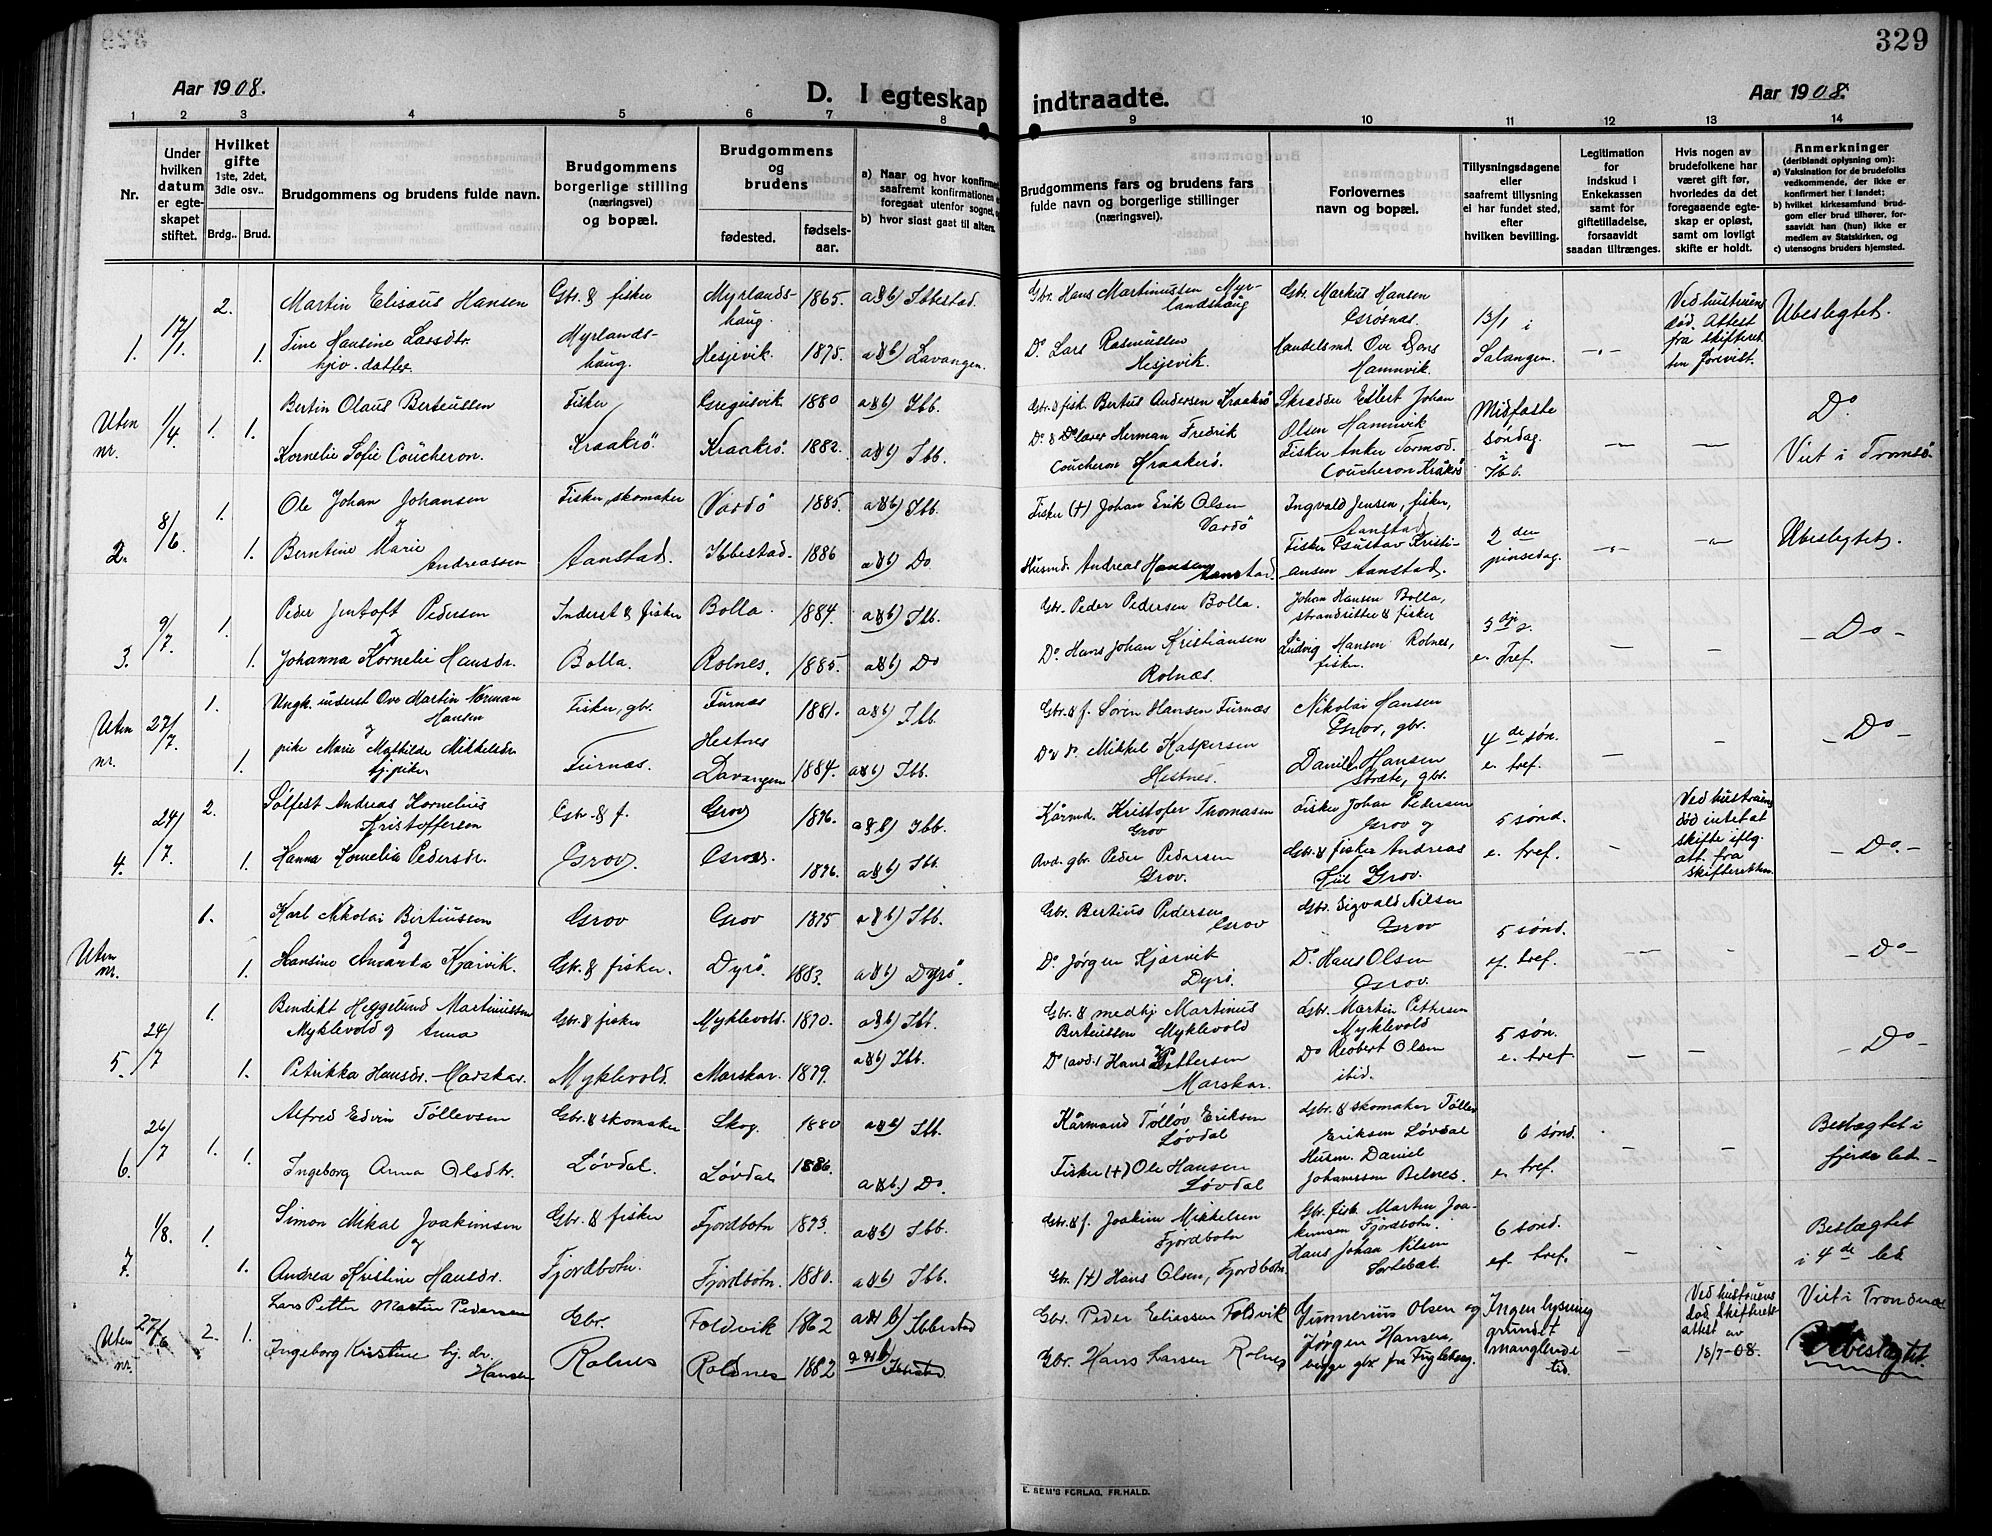 329
Aar 1908.
D. I egteskap indtraadte.
Aar 1908.
1 2 3 4 5 6 7 8 9 10 11 12 13 14
Nr.
Under hvilken datum er egte-skapet stiftet.
Hvilket gifte 1ste, 2det, 3die osv..
Brdg.. Brud.
Brudgommens og brudens fulde navn.
Brudgommens borgerlige stilling (næringsvei) og bopæl.
Brudgommens og brudens
fødested.
fødsels-aar.
a) Naar og hvor konfirm
saafremt konfirmationen
foregaat utenfor sognet,
b) hvor sidst gaat til alters.
Brudgommens fars og brudens fars fulde navn og borgerlige stillinger (næringsvei).
Forlovernes navn og bopæl.
Tillysningsdagene eller saafremt tillysning ei har fundet sted, efter hvilken bevilling.
Legitimation for indskud i Enkekassen samt for giftetilladelse, forsaavidt saadan tiltrænges.
Hvis nogen av brudefolkene har været gift før, hvorledes da det foregaaende egte-skap er opløst, samt om lovligt skifte er holdt.
Anmerkninger
(deriblandt oplysning om):
a) Vaksination for de brudefolks vedkommende, der ikke er konfirmert her i landet;
b) hvilket kirkesamfund brud-gom eller brud tilhører, for-saavidt han (hun) ikke er medlem av Statskirken, og
c) utensogns bruders hjemsted.
1. 17/1. 2. Martin Elisæus Hansen Gbr. & fisker Myrlands-haug. 1865. a&b) Ibbestad. Gbr. Hans Martinussen Myr-landshaug Gbr. Markus Hansen Grøsnæs. 13/1 i Ved hustruens død. Attest fra skifteret-ten forevist. Ubeslegtet.
1. Tine Hansine Larsdtr. hjv. datter Myrlands-haug. Hesjevik. 1875. a&b) Lavangen. Do Lars Rasmussen Hesjevik. Handelsmd. Ove Dons Hamnvik. Salangen. -"-
Uten nr. 1/4. 1. Bertin Olaus Berteussen Fisker Gregusvik. 1880 a&b) Ibb. Gbr. & fisk. Bertus Andersen Kraakrø Skrædder Edlert Johan Olsen Hamnvik Midfaste søndag. Do.
1. Kornelie Sofie Coucheron. Kraakrø Kraakrø. 1882. a&b) Ibb. Do & Do lærer Herman Fredrik Coucheron Kraakerø. Fisker Anker Tormod. Coucheron Kråkrø i Ibb. Viet i Tromsø.
2. 8/6. 1. Ole Johan Johansen Fisker, skomaker Vardø 1885. a&b) Ibb. Fisker (+) Johan Erik Olsen Vardø Ingvald Jensen, fisker, Aanstad 2den pinsedag. Ubeslegtet.
1. Berntine Marie Andreassen Aanstad. Ibbestad. 1886 a&b) Do Husmd. Andreas Hansen Aanstad. Fisker Gustav Kristi-ansen Aanstad. -"- -"-
3. 9/7. 1. Peder Jentoft Pedersen Inderst & fisker Bolla. 1884. a&b) Ibb. Gbr. Peder Pedersen Bolla. Johan Hansen Bolla, strandsitter & fisker 3dje s. -Do-
1. Johanna Kornelie Hansdr. Bolla. Rolnes. 1885. a&b) Do Do. Hans Johan Kristiansen Rolnæs. Ludvig Hansen Rolnes, fisker. e. Tref.
Uten nr. 27/7. 1. Ungk. inderst Ove Martin Norman Hansen Fisker, gbr. Furnæs 1881. a&b) Ibb. Gbr. & f. Søren Hansen Furnæs Nikolai Hansen Grov, gbr. 4de søn. -Do-
1. pike Marie Mathilde Mikkelsdr. Furnæs. Hestnes 1884. a&b) Ibb. Mikkel Kaspersen Hestnes. Daniel Hansen Stræte, gbr. e. tref.
4. 24/7. 2. Sølfest Andreas Kornelius Kristoffersen Gbr. & f. Grov 1876. a&b) Ibb. Kårmd. Kristofer Thomasen Grov Fisker Johan Pedersen Grov og 5 sønd. Ved hustruens død intet at skifte iflg. att. fra skifteretten. -Do.-
1. Hanna Kornelia Pedersdr. Grov. Grov. 1876. a&b) Ibb. Avd. gbr. Peder Pedersen Grov. Gbr. & fisker Andreas Kiil Grov. e. tref.
Uten nr. 1. Karl Nikolai Bertiussen Grov Grov 1875 a&b) Ibb. Gbr. Bertius Pedersen Grov Gbr. Sigvald Nilsen Grov 5 sønd. -Do-
1. Hansine Kjårvik. Gbr. & fisker. Dyrø. 1883. a&b) Dyrø. Do. Jørgen Kjårvik Dyrø. Do. Hans Olsen Grov. ef. tref.
5. 24/7 1. Bendikt Heggelund Martinussen Myklevold og Anna Gbr. & fisker Myklevold. 1870. a&b) Ibb. Gbr. & medhj. Martinus Berteussen Myklevold Gbr. Martin Pettersen Myklevold 5 søn. -Do-
1. Petrikka Hansdr. Marskar. Myklevold. Marskar. 1879. a&b) Ibb. Do (avd.) Hans Pettersen Marskar. Do Robert Olsen ibid. e. tref.
6. 26/7 1. Alfred Edvin Tøllevsen Gbr. & skomaker Skog. 1880 a&b) Ibb. Kårmand Tølløv Eriksen Løvdal Gbr. & skomaker Tøllev Eriksen Løvdal 6 sønd. Beslægtet i fjerde led.
1. Ingeborg Anna Olsdtr. Løvdal. Løvdal 1886. a&b) Do. Fisker (+) Ole Hansen Løvdal Husm. Daniel Johanssen Belnes. e. tref.
7. 1/8. 1. Simon Mikal Joakimsen og Gbr. & fisker Fjordbotn 1873. a&b) Ibb. Gbr. & f. Joakim Mikkelsen Fjordbotn Gbr. fisk. Martin Joa-kimsen Fjordbotn. 6 sønd. Beslægtet i 4de led
1. Andrea Kristine Hansdr. Fjordbotn. Fjordbotn. 1880. a&b) Ibb. Gbr. (+) Hans Olsen, Fjordbotn. Hans Johan Nilsen Sørlebæk. ef. tref.
Uten nr. 27/6 2. Lars Petter Martin Pedersen Gbr. Foldvik 1862 a & b) Ibbestad Gbr. Peder Eliassen Foldvik Gunnerius Olsen og Ingen lysning grundet Ved hustruens død skifterets attest av 18/7-08. Viet i Trondenæs
1. Ingeborg Kristine hj. dr. Hansen Rolnes Roldnes 1882 a & b) Ibbestad Gbr. Hans Larsen Rolnes Jørgen Hansen, begge gbr fra Fugleberg. manglende tid. Ubeslægtet.
E. SEM'S FORLAG, FR.HALD.